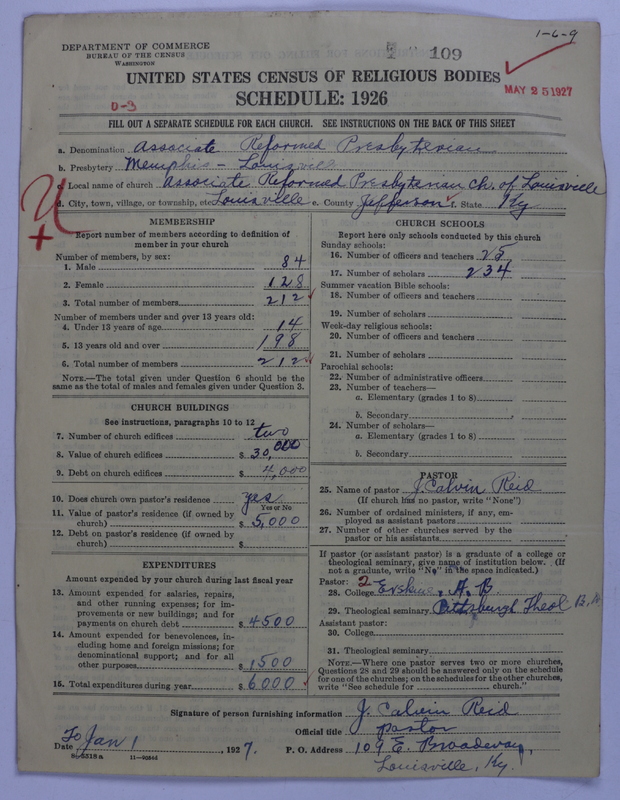 1-6-9
109
DEPARTMENT OF COMMERCE
BUREAU OF THE CENSUS
WASHINGTON
UNITED STATES CENSUS OF RELIGIOUS BODIES
MAY 25 1927
SCHEDULE: 1926
D-3
FILL OUT A SEPARATE SCHEDULE FOR EACH CHURCH. SEE INSTRUCTIONS ON THE BACK OF THIS SHEET
a. Denomination Associate Reformed Presbyterian
b. Presbytery Memphis - Louisville
c. Local name of church Associate Reformed Presbyterian Ch. of Louisville
d. City, town, village, or township, etc. Louisville e. County Jefferson f. State Ky
MEMBERSHIP
Report number of members according to definition of
member in your church
Number of members, by sex:
1. Male 84
2. Female 128
3. Total number of members 212
Number of members under and over 13 years old:
4. Under 13 years of age 14
5. 13 years old and over 198
6. Total number of members 212
NOTE.—The total given under Question 6 should be the
same as the total of males and females given under Question 3.
CHURCH BUILDINGS
See instructions, paragraphs 10 to 12
7. Number of church edifices two
8. Value of church edifices $ 30,000
9. Debt on church edifices $ 4,000
10. Does church own pastor's residence yes
Yes or No
11. Value of pastor's residence (if owned by
church) $ 5,000
12. Debt on pastor's residence (if owned by
church) $
EXPENDITURES
Amount expended by your church during last fiscal year
13. Amount expended for salaries, repairs,
and other running expenses; for im-
provements or new buildings; and for
payments on church debt $ 4500
14. Amount expended for benevolences, in-
cluding home and foreign missions; for
denominational support; and for all
other purposes $ 1500
15. Total expenditures during year $ 6000
CHURCH SCHOOLS
Report here only schools conducted by this church
Sunday schools:
16. Number of officers and teachers 25
17. Number of scholars 234
Summer vacation Bible schools:
18. Number of officers and teachers
19. Number of scholars
Week-day religious schools:
20. Number of officers and teachers
21. Number of scholars
Parochial schools:
22. Number of administrative officers
23. Number of teachers—
a. Elementary (grades 1 to 8)
b. Secondary
24. Number of scholars—
a. Elementary (grades 1 to 8)
b. Secondary
PASTOR
25. Name of pastor J. Calvin Reid
(If church has no pastor, write "None")
26. Number of ordained ministers, if any, em-
ployed as assistant pastors
27. Number of other churches served by the
pastor or his assistants
If pastor (or assistant pastor) is a graduate of a college or
theological seminary, give name of institution below. (If
not a graduate, write "No" in the space indicated.)
Pastor: 2
28. College Erskine, A. B.
29. Theological seminary Pittsburgh Theol
Assistant pastor:
30. College
31. Theological seminary
NOTE.—Where one pastor serves two or more churches,
Questions 28 and 29 should be answered only on the schedule
for one of the churches; on the schedules for the other churches,
write "See schedule for church."
Signature of person furnishing information J. Calvin Reid
Official title Pastor
To
Date Jan 1, 1927. P. O. Address 109 E. Broadway,
Louisville, Ky.
8-5518a 11-9054d